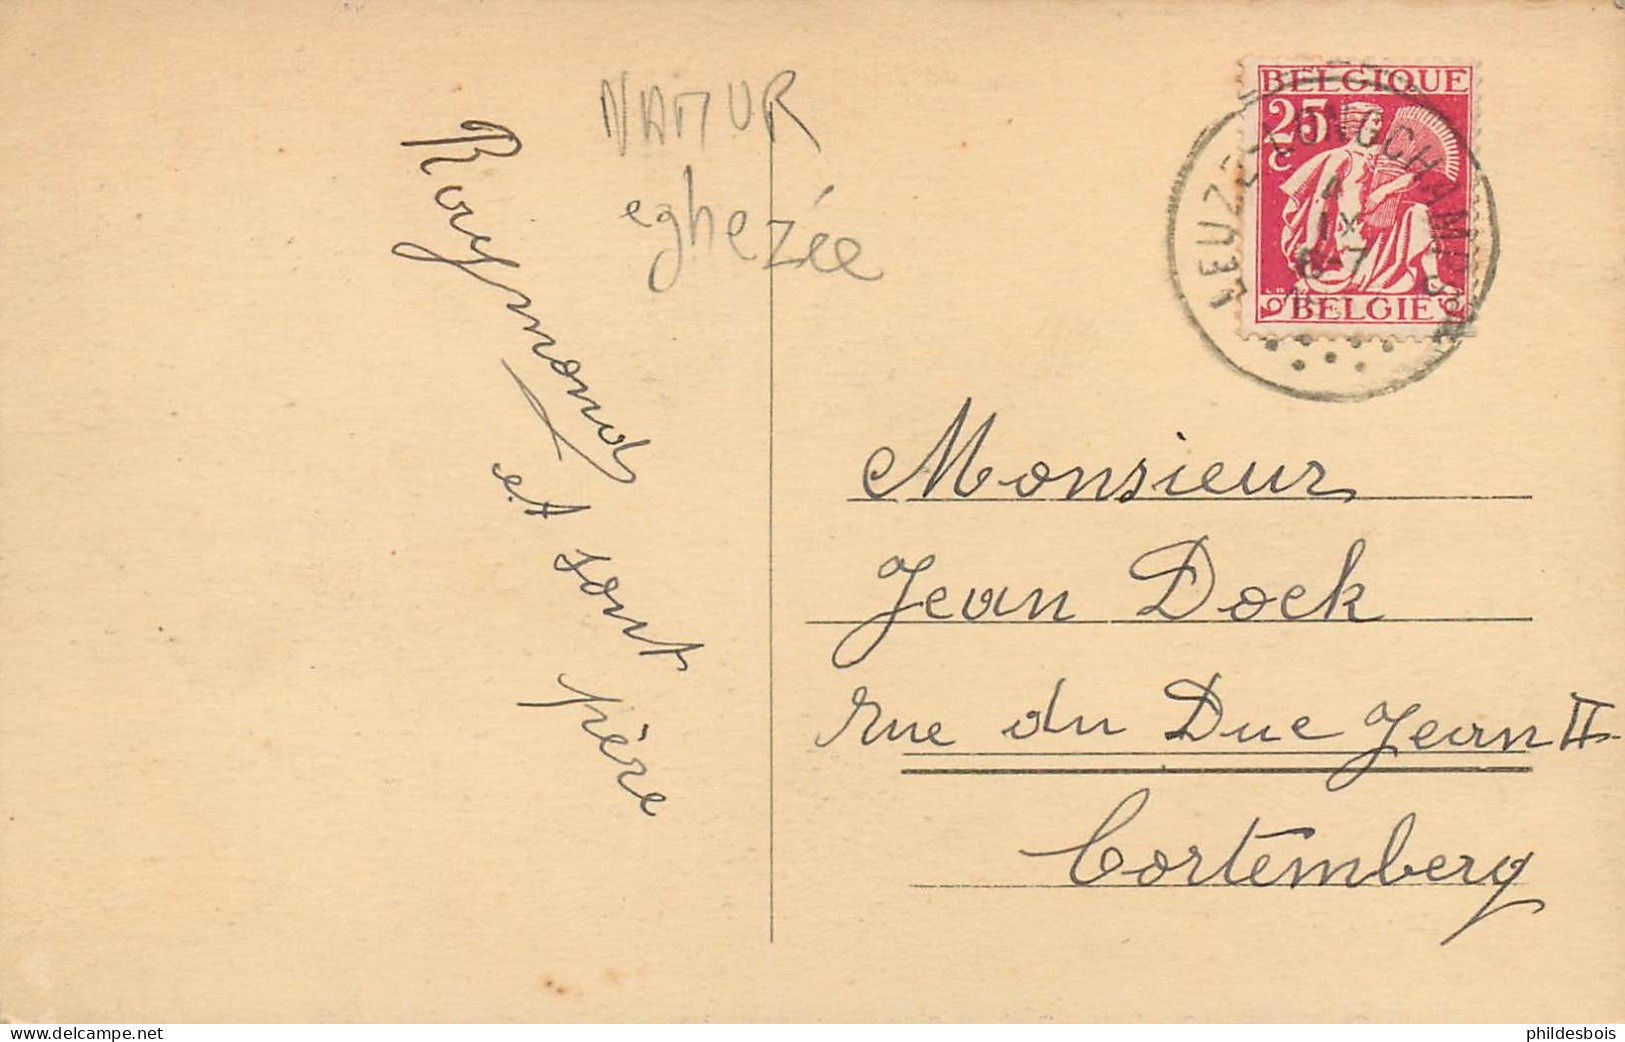 NAMUR
eghezée
Raymond
et sont
père
BELGIQUE
25
C
BELGIE
LEUZE-LONGCHAMPS
IX
6-7
Monsieur
Jean Doek
rue du Duc Jean II
Cortemberg
www.delcampe.net
phildesbois